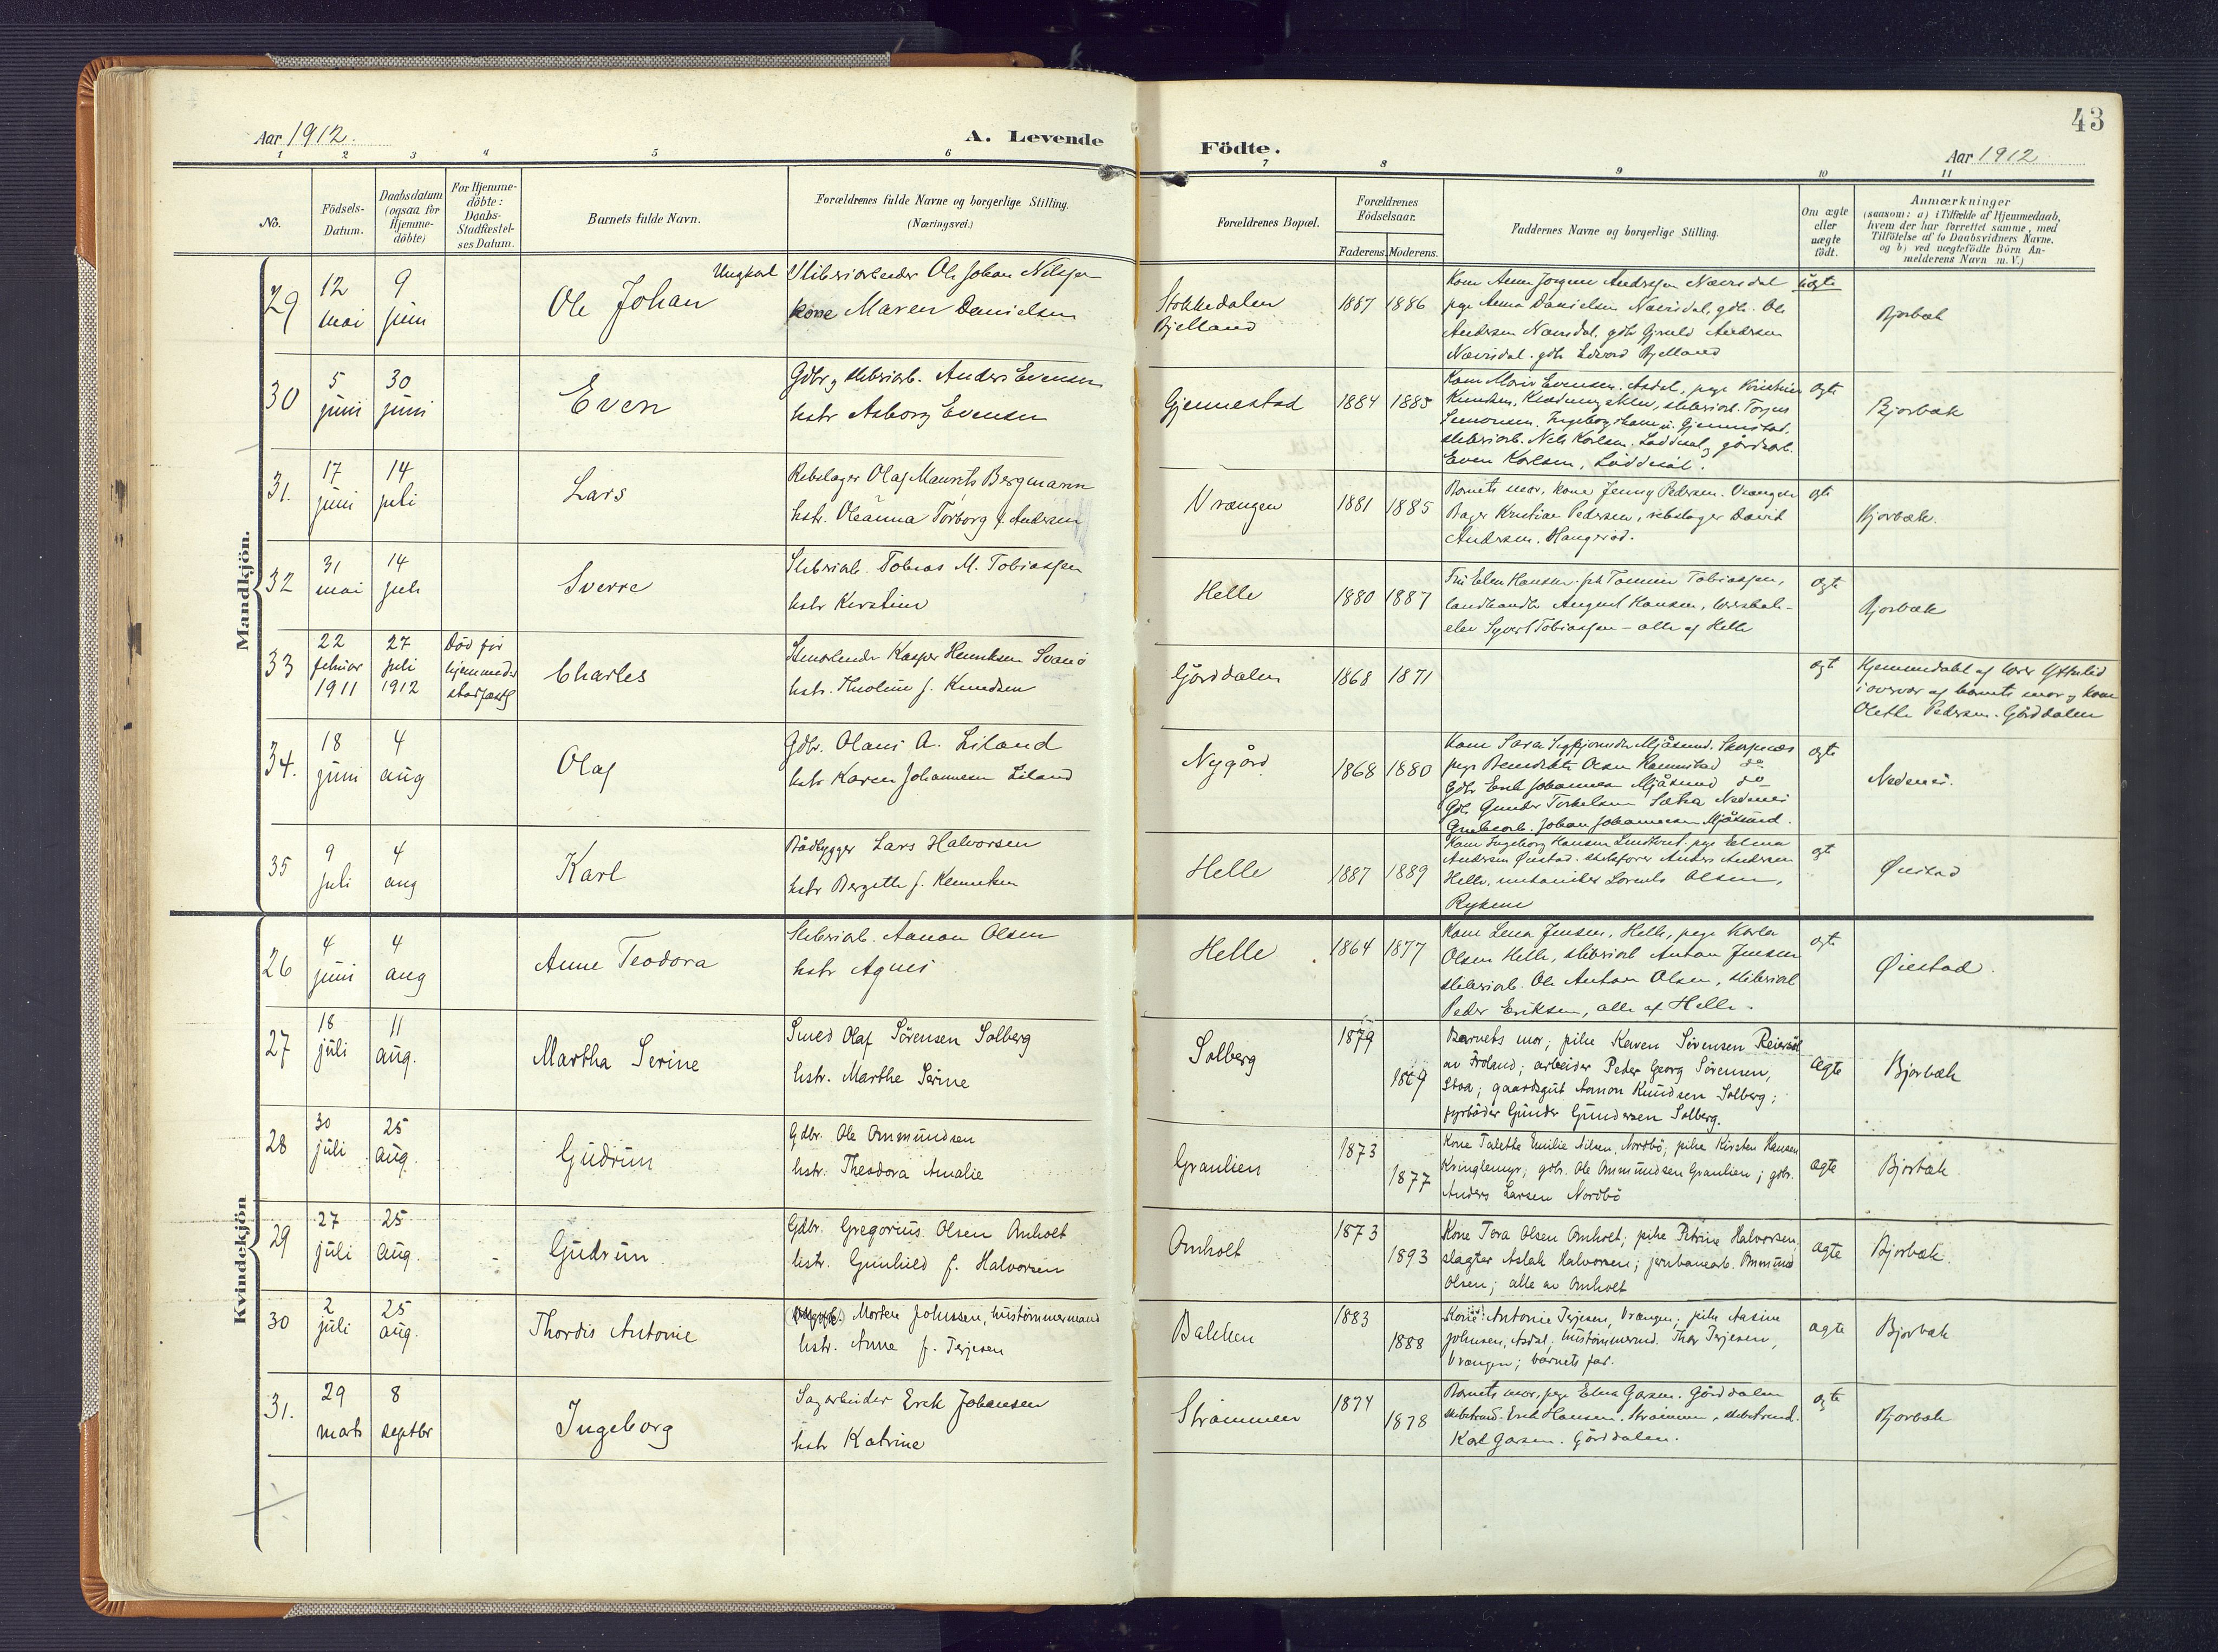 43
Aar 1912.
A. Levende
Födte.
Aar 1912
1 2 3 4 5 6 7 8 9 10 11
No.
Födsels-
Datum.
Daabsdatum
(ogsaa for
Hjemme-
döbte)
For Hjemme-
döbte:
Daabs-
Stadfæstel-
ses Datum.
Barnets fulde Navn.
Forældrenes fulde Navne og borgerlige Stilling.
(Næringsvei.)
Forældrenes Bopæl.
Forældrenes
Födselsaar.
Faderens. Moderens.
Faddernes Navne og borgerlige Stilling.
Om ægte
eller
uægte
födt.
Anmærkninger
(saasom: a) i Tilfælde af Hjemmedaab,
hvem der har forrettet samme, med
Tilföielse af to Daabsvidners Navne.
og b) ved uægtefödte Börn An-
melderens Navn m. V.)
Mandkjön.
29
12
mai
9
juni
Ole Johan
Ungkarl Sliberiarbeider Ole Johan Nilsen
kone Maren Danielsen
Stokkedalen
Bjelland
1887 1886
Kone Anne Jorgine Andresen Nævisdal
pige Anna Danielsen Nævisdal, gdbr. Ole
Andersen Nævisdal, gdbr Andersen
Nævisdal. gdbr Edvard Bjelland
uægte
Bjorbæk
30
5
juni
30
juni
Even
Gdbr. og sliberiarb. Anders Evensen
hstr Aasborg Evensen
Gjennestad
1884 1885
Kone Marie Evensen. Asdal, pige Kristine
Knudsen, sliberiarb. Torjus
Simonsen. Gjennestad.
sliberiarb. Nils Karlsen. Løddesøl, og gårdarb.
Even Karlsen, Løddesøl.
ægte
Bjorbæk
31.
17
juni
14
juli
Lars
Rebslager Olaf Maurits Bergmann
hstr. Oleanna Torborg f. Andersen
Vrængen
1881 1885
Barnets mor, kone Jenny Pedersen. Vrængen
Bager Kristian Pedersen, rebslager David
Andersen.
ægte
Bjorbæk.
32
31
mai
14
juli
Sverre
Sliberiarb. Tobias M. Tobiassen
hstr Kirstine
Helle
1880 1887
Fru Elen Hansen. frk Tomine Tobiassen,
landhandler August Hansen,
elev Syvert Tobiassen - alle af Helle
ægte
Bjorbæk
33
22
februar
1911
27
juli
1912
Död för
hjemmed.
stadfæst.
Charles
Stenarbeider Kasper Henriksen
hstr. Tholine f. Knudsen
Gårddalen
1868 1871
ægt
Hjemmedøbt af lærer
i overvær af barnets mor og kone
Olette Pedersen. Gårddalen
34.
18
juni
4
aug
Olaf
Gdbr. Olaus A. Liland
hstr Karen Johannesen Liland
Nygård
1868 1880
Kone Sara Mjåsund.
pige Benedikte Olsen do
Gdbr Erik Johannesen Mjåsund do
Gdb. Gunder Terkelsen Sætra Nedenes
Grubearb. Johan Johannesen Mjåsund.
ægte
Nedenes.
35
9
juli
4
aug
Karl
Bådbygger Lars Halvorsen
hstr Bergitte f. Henriksen
Helle
1887 1889
Kone Ingeborg Hansen pige Elma
Andersen Øiestad. skibsfører Anders Andersen
Helle, mekaniker Lorents Olsen,
Rykene
ægte
Øiestad
Kvindekjön
26
4
juni
4
aug
Anne Teodora
Sliberiarb. Aanon Olsen
hstr Agnes
Helle
1864 1877
Kone Lena Jensen, Helle, pige Karla
Olsen Helle, sliberiarb Anton Jensen
sliberiarb. Ole Anton Olsen, sliberiarb
Peder Eriksen, alle af Helle.
ægte
Øiestad.
27
18
juli
11
aug.
Martha Serine
Smed Olaf Sörensen Solberg
hstr. Marthe Serine
Solberg
1879
1869
Barnets mor; pike Karen Sörensen Reiersöl
av Froland; arbeider Peder Georg Sörensen,
Stoa; gaardsgut Aamon Knudsen Solberg;
fyrböder Gunder Gundersen Solberg.
ægte
Bjorbæk
28
30
juli
25
aug.
Gudrun
Gdbr. Ole Ommundsen
hstr. Theodora Amalie
Granlien
1873
1877
Kone Talette Emilie Nilsen, Nordbö; pike Kirsten Hansen
Kringlemyr; gdbr. Ole Ommundsen Granlien; gdbr.
Anders Larsen Nordbö
ægte
Bjorbæk
29
27
juli
25
aug.
Gudrun
Gdbr. Gregorius Olsen Omholt
hstr. Gunhild f. Halvorsen
Omholt
1873
1893
Kone Tora Olsen Omholt; pike Petrine Halvorsen,
slagter Aslak Halvorsen; jernbanearb. Ommund
Olsen; alle av Omholt
ægte
Bjorbæk.
30
2
juli
25
aug.
Thordis Antonie
Morten Johnsen, hustömmermand
hstr. Anne f. Terjesen
Bakken
1883
1888
Kone Antonie Terjesen, Vrængen; pike Aasine
Johnsen, Asdal; hustömmermd. Thor Terjesen,
Vrængen; barnets far.
ægte
Bjorbæk
31.
29
marts
8
septbr
Ingeborg
Sagarbeider Erik Johansen
hstr Katrine
Strømmen
1874
1878
Barnets mor, pige Elna Gårddalen
skibstmd. Erik Hansen. Strømmen, skibstmd.
Karl Gårddalen.
ægte
Bjorbæk